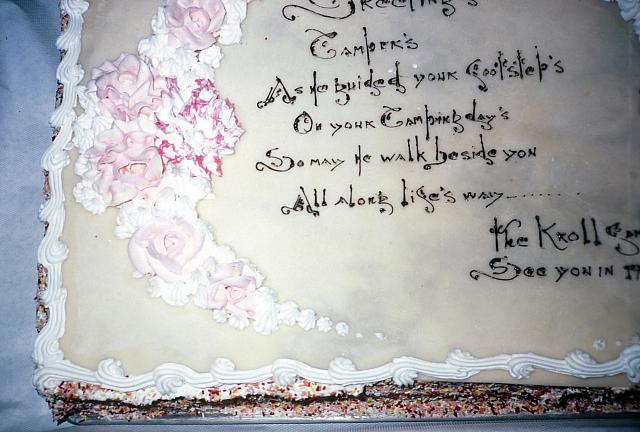 Greeting's
Camper's
As he guided your footstep's
On your Camping day's
So may he walk beside you
All along life's way..........
The Kroll
See you in